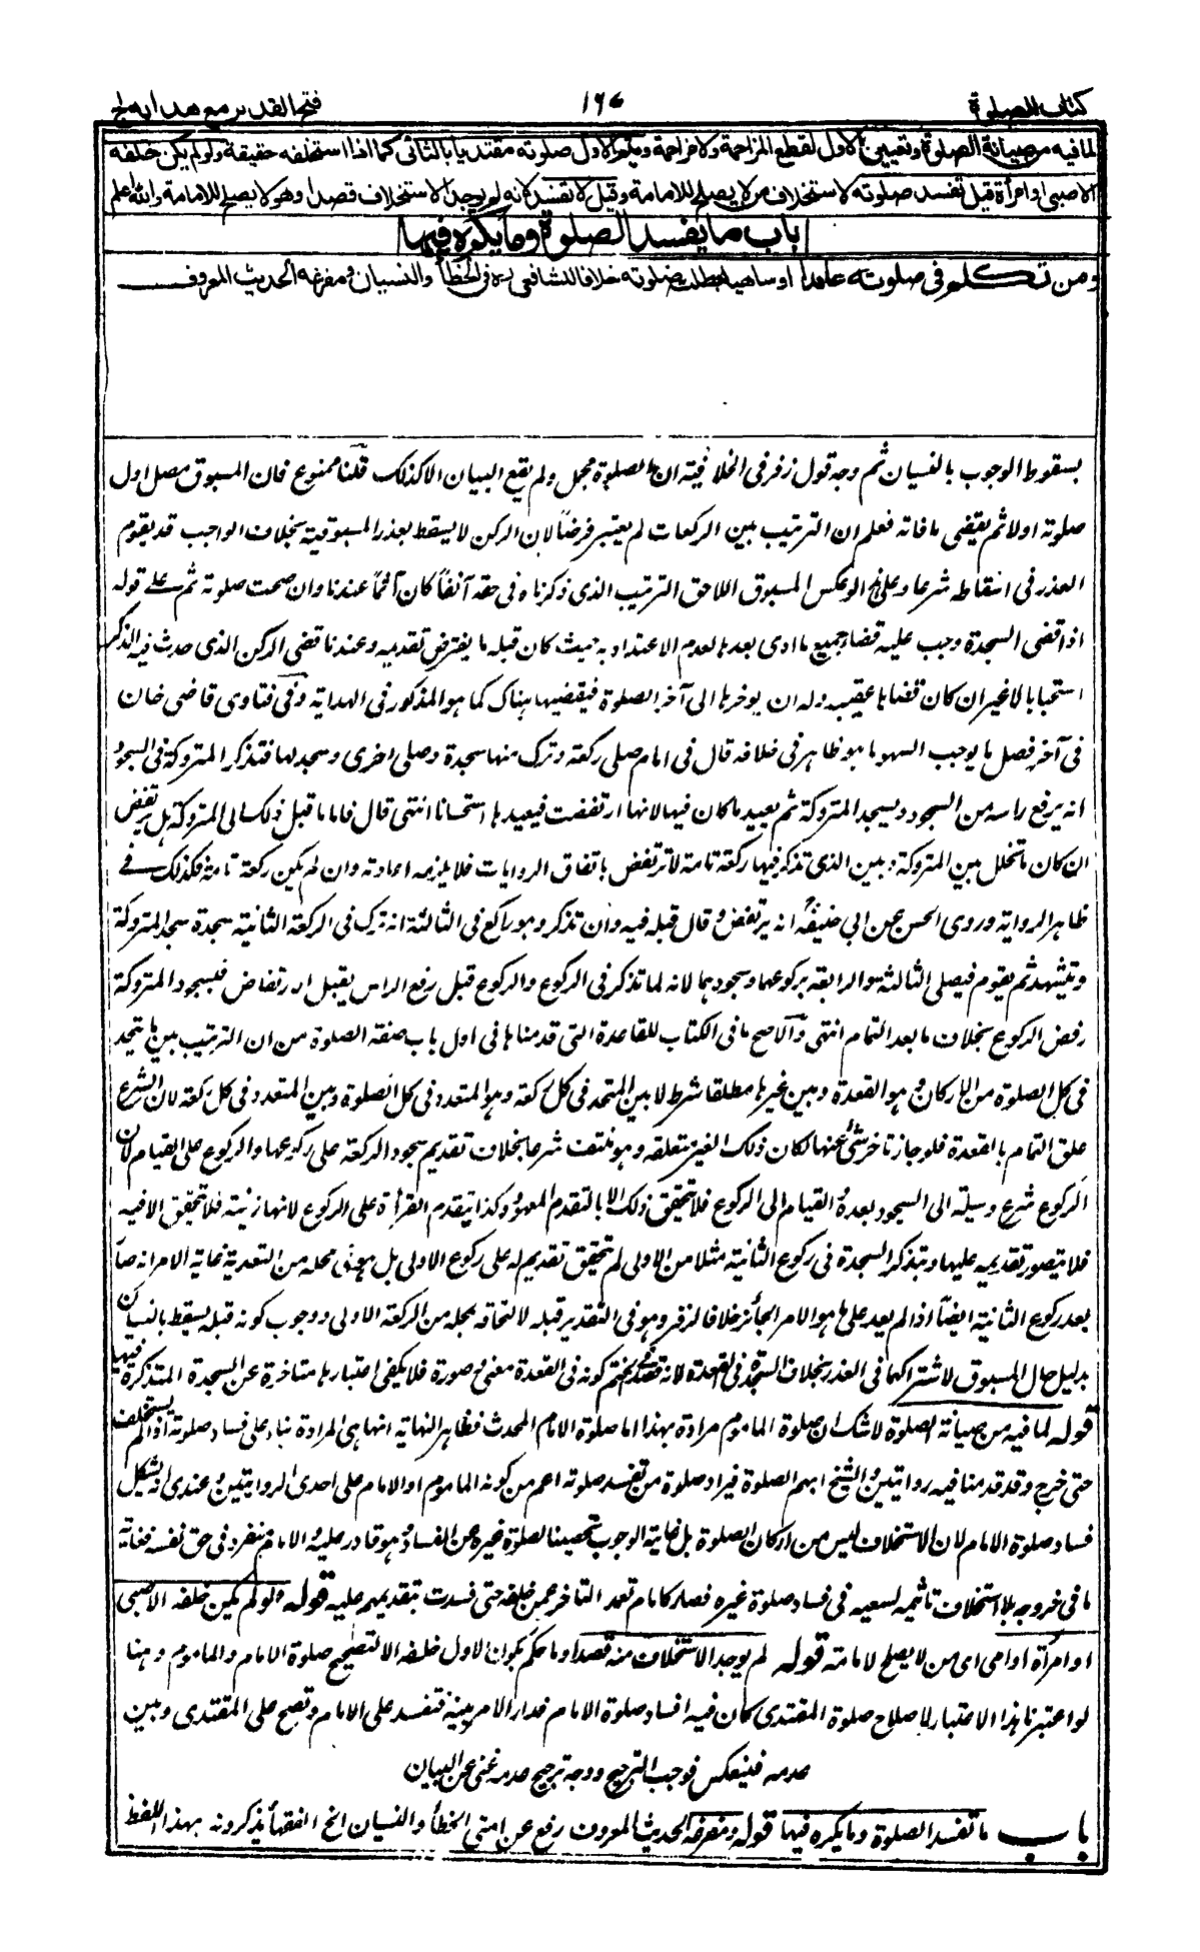 كتاب الصلوة
١٦٧
فتح القدير مع هدايه ج
لما فيه من صيانة الصلوة وتعيين الاول لقطع المزاحمة ولا مزاحمة ويتم الاول صلوته مقتديا بالثانى كما اذا استخلفه حقيقة ولو لم يكن خلفه
الا صبى او امرأة قيل تفسد صلوته لاستخلاف من لا يصلح للامامة وقيل لا تفسد لانه لم يوجد الاستخلاف قصدا وهو لا يصلح للامامة والله اعلم
باب ما يفسد الصلوة وما يكره فيها
ومن تكلم فى صلوته عامدا او ساهيا بطلت صلوته خلافا للشافعى فى الخطأ والنسيان ومفزعه الحديث المعروف
بسقوط الوجوب بالنسيان ثم وجه قول زفر فى الخلافية ان الصلوة مجمل ولم يقع البيان الا كذلك قلنا ممنوع فان المسبوق مصل اول
صلوته اولا ثم يقضى ما فاته فعلم ان الترتيب بين الركعات لم يعتبر فرضا لان الركن لا يسقط بعذر المسبوقية بخلاف الواجب قد يقوم
العذر فى اسقاطه شرعا وعلى هذا لو عكس المسبوق اللاحق الترتيب الذى ذكرناه فى حقه آنفا كان آثما عندنا وان صحت صلوته ثم على قوله
اذا قضى السجدة وجب عليه قضاء جميع ما ادى بعدها لعدم الاعتداد به حيث كان قبله ما يفترض تقديمه وعندنا قضى الركن الذى حدث فيه الذكر
استحبابا لا غير ان كان قضاها عقيبه وله ان يؤخرها الى آخر الصلوة فيقضيها هناك كما هو المذكور فى الهداية وفى فتاوى قاضى خان
فى آخر فصل ما يوجب السهو ما هو ظاهر فى خلافه قال فى امام صلى ركعة وترك منها سجدة وصلى اخرى وسجد لها فتذكر المتروكة فى السجود
انه يرفع راسه من السجود ويسجد المتروكة ثم يعيد ما كان فيها لانها ارتفضت فيعيدها استحسانا انتهى قال فاما ما قبل ذلك الى المتروكة هل يرتفض
ان كان ما تخلل بين المتروكة وبين الذى تذكر فيها ركعة تامة لا ترتفض باتفاق الروايات فلا يلزمه اعادته وان لم يكن ركعة تامة فكذلك فى
ظاهر الرواية وروى الحسن عن ابى حنيفة انه يرتفض وقال قبله فيه وان تذكر وهو راكع فى الثالثة انه ترك فى الركعة الثانية سجدة سجد المتروكة
وتيشهد ثم يقوم فيصلى الثالثة والرابعة بركوعهما وسجودهما لانه لما تذكر فى الركوع والركوع قبل رفع الراس يقبل الارتفاض فبسجود المتروكة
رفض الركوع بخلاف ما بعد التمام انتهى والاصح ما فى الكتاب للقاعدة التى قدمناها فى اول باب صفة الصلوة من ان الترتيب بين ما يتحد
فى كل الصلوة من الاركان وهو القعدة وبين غيرها مطلقا شرط لا بين المتحد فى كل ركعة وهو المتعدد فى كل الصلوة وبين المتعدد فى كل ركعة لان الشرع
علق التمام بالقعدة فلو جاز تاخر شئ عنها لكان ذلك الغير متعلقه وهو منتف شرعا بخلاف تقديم سجود الركعة على ركوعها والركوع على القيام لان
الركوع شرع وسيلة الى السجود بعده القيام الى الركوع فلا تحقق ذلك الا بالتقدم المعهود وكذا تقدم القرأة على الركوع لانها زينته فلا تحقق الا فيه
فلا يتصور تقديمه عليها وبتذكر السجدة فى ركوع الثانية مثلا من الاولى لم تحقق تقديم له على ركوع الاولى بل هو فى محله من التعدية غاية الامر انه صار
بعد ركوع الثانية ايضا اذا لم يعد على ما هو الامر الجائز خلافا لزفر وهو فى التقدير قبله لالتحاقه بمحله من الركعة الاولى ووجوب كونه قبله يسقط بالنسيان
بدليل حال المسبوق لاشتراكهما فى العذر بخلاف السجدة فى القعدة لانه كونه فى القعدة معنى وصورة فلا يكفى اعتبارها متاخرة عن السجدة المتذكرة فيها
قوله لما فيه من صيانة الصلوة لا شك ان صلوة الماموم مرادة بهذا اما صلوة الامام المحدث فظاهر النهاية انها هى المرادة بناء على فساد صلوته اذا لم يستخلف
حتى خرج وقد قدمنا فيه روايتين والشيخ ابهم الصلوة فيراد صلوة من تفسد صلوته اعم من كونه الماموم او الامام على احدى الروايتين وعندى انه يشكل
فساد صلوة الامام لان الاستخلاف ليس من اركان الصلوة بل غاية الوجوب تحصينا لصلوة غيره عن الفساد وهو قادر عليه والامام منفرد فى حق نفسه فغاية
ما فى خروجه بلا استخلاف تاثيمه لسعيه فى فساد صلوة غيره فصار كامام تعمد التاخر عمن خلفه حتى فسدت بتقديمهم عليه قوله ولو لم يكن خلفه الا صبى
او امرأة او امى اى من لا يصلح لامامته قوله لم يوجد الاستخلاف منه قصدا وما حكم بكون الاول خلفه الا لتصحيح صلوة الامام والماموم وهنا
لو اعتبرنا هذا الاعتبار لاصلاح صلوة المقتدى كان فيه افساد صلوة الامام فدار الامر بينه فتفسد على الامام وتصح على المقتدى وبين
عدمه فينعكس فوجب الترجيح ووجه ترجيح عدمه غنى عن البيان
باب ما تفسد الصلوة وما يكره فيها قوله ومفزعه الحديث المعروف رفع عن امتى الخطأ والنسيان الخ الفقهاء يذكرونه بهذا اللفظ